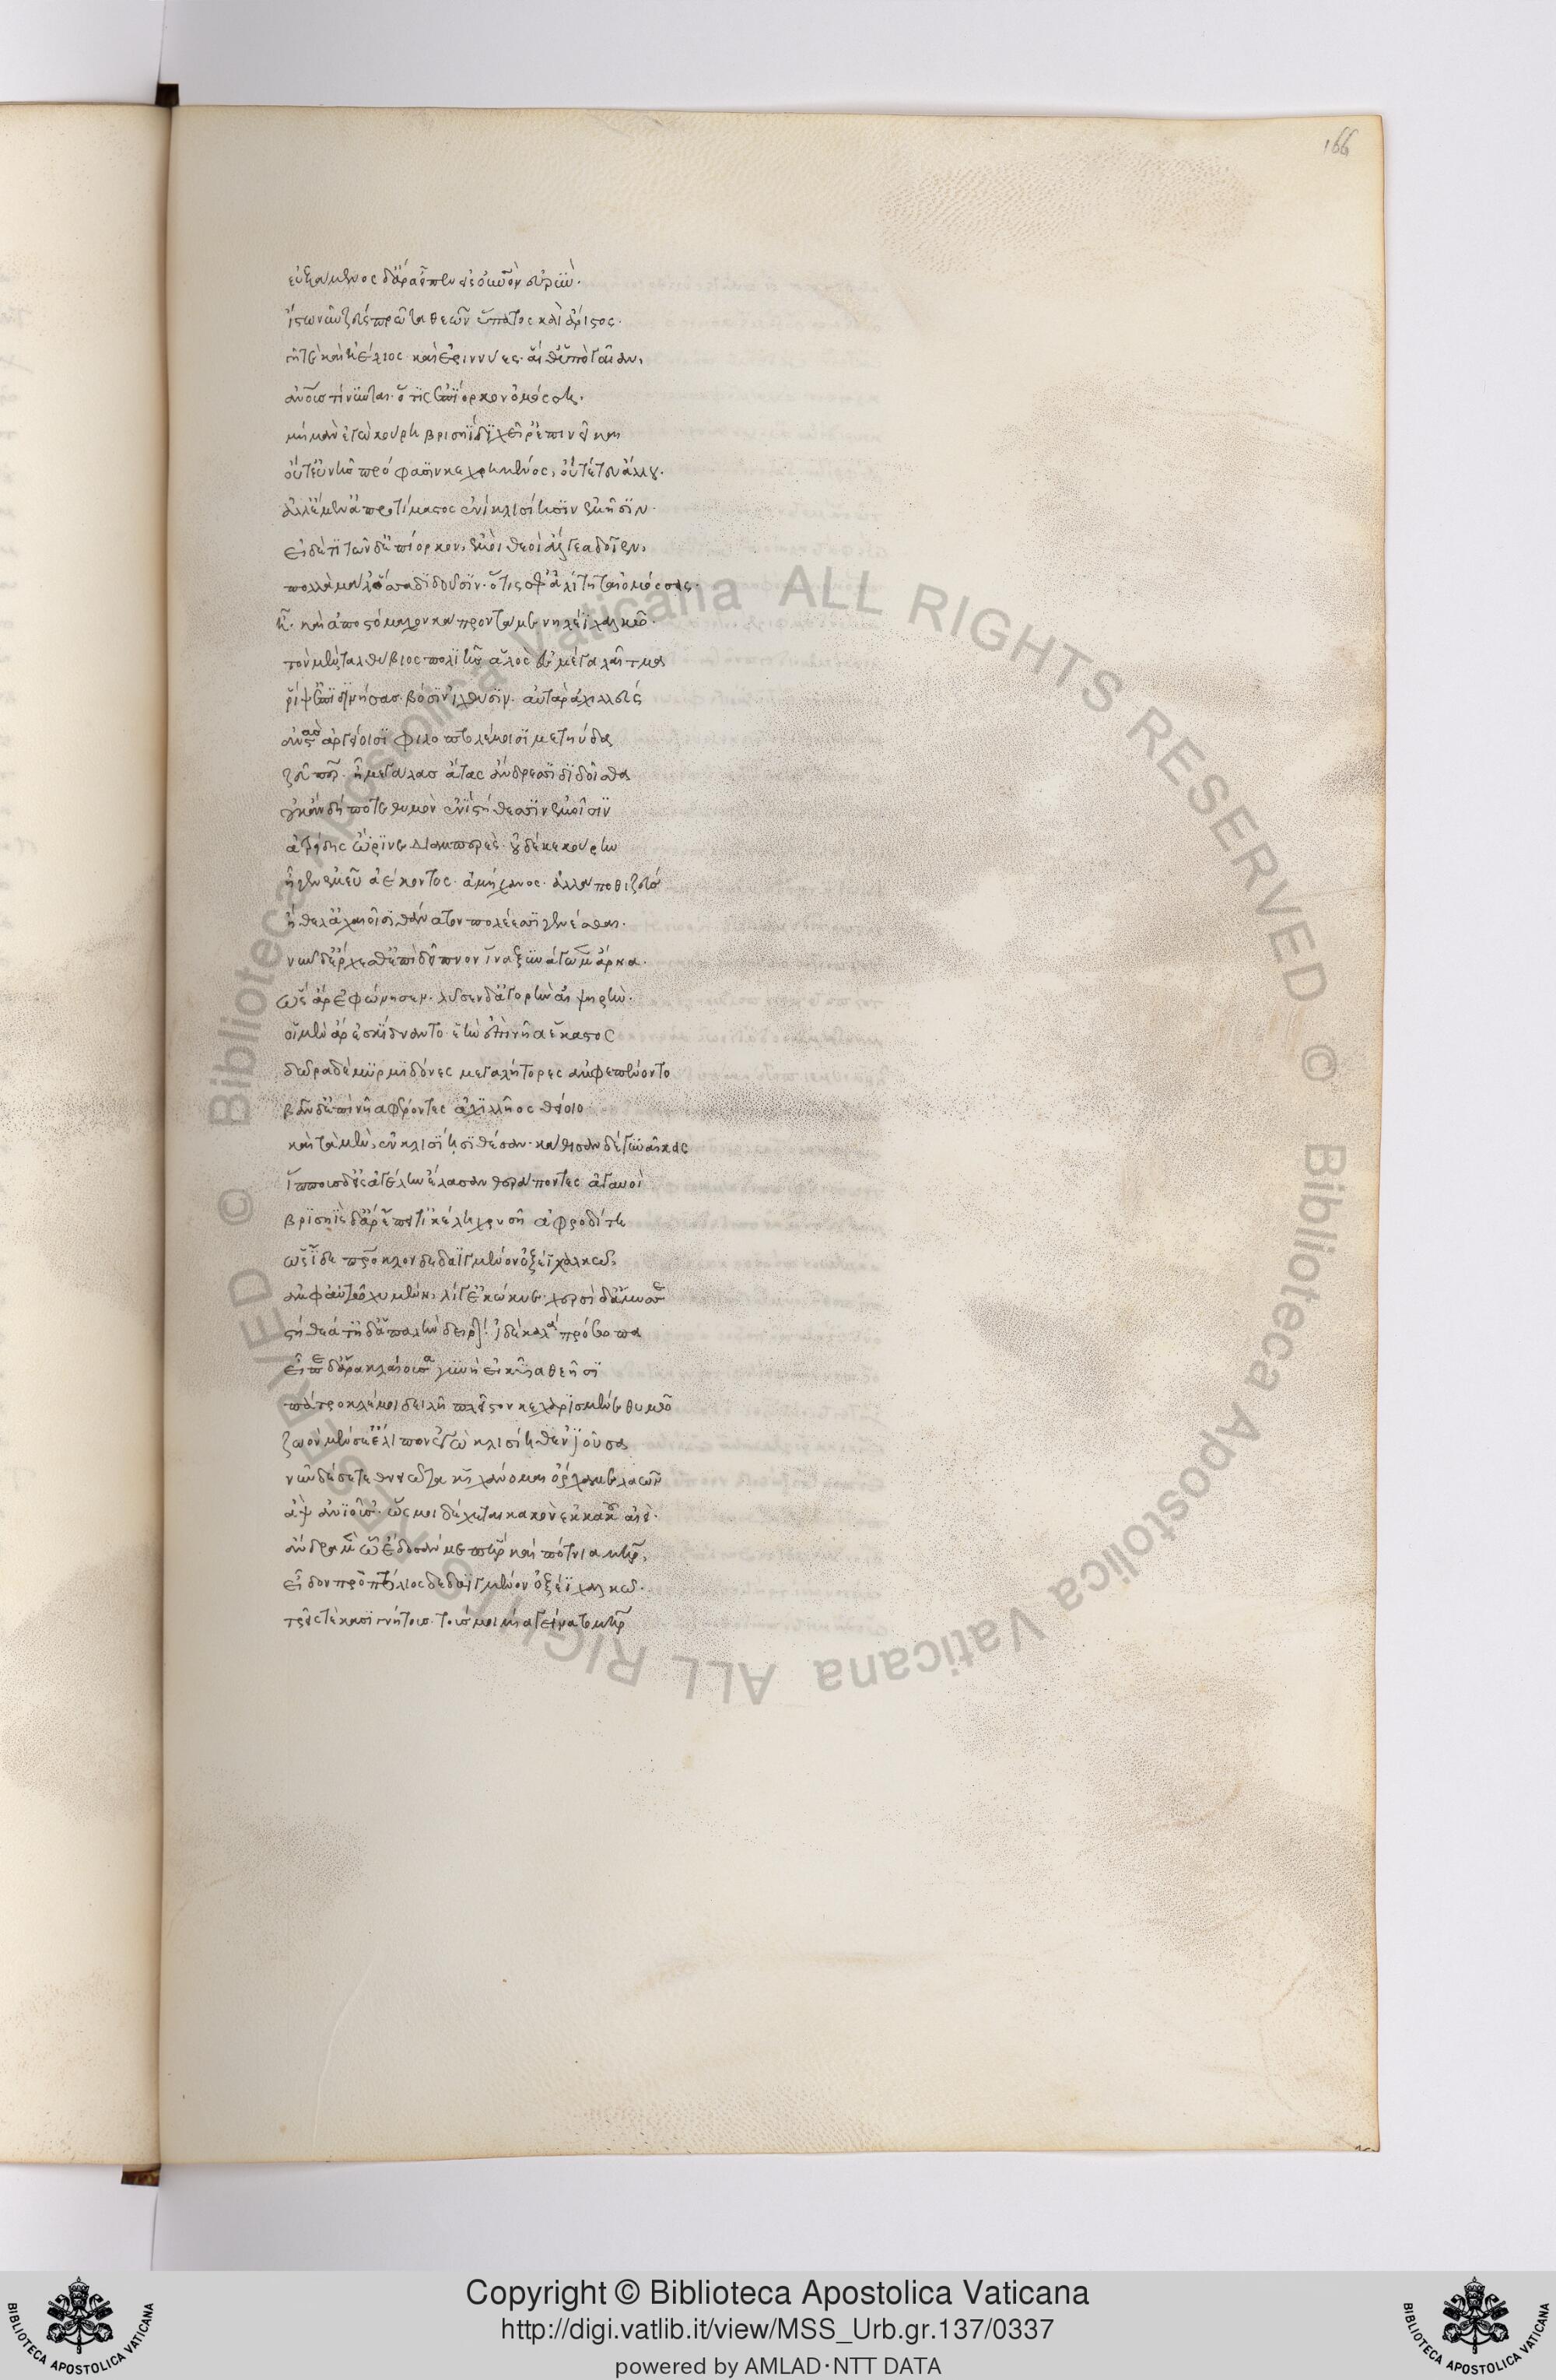 166
εὐξάμενος δ' ἄρα εἶπεν ἰδὼν εἰς οὐρανὸν εὐρὺν·
ἴστω νῦν ζεὺς πρῶτα θεῶν ὕπατος καὶ ἄριστος·
γῆ τε καὶ ἠέλιος· καὶ ἐριννύες· αἵ θ' ὑπὸ γαῖαν,
ἀνθρώπους τίνυνται· ὅτις ἐπίορκον ὀμόσση.
μὴ μὰν ἐγὼ κούρη βρισηΐδι χεῖρ' ἐπένεικα
οὔτ' εὐνῆς πρόφασιν κεχρημένος, οὔτέ του ἄλλου.
ἀλλ' ἔμεν' ἀπροτίμαστος ἐνὶ κλισίησιν ἐμῇσιν.
εἰ δέ τι τῶνδ' ἐπίορκον, ἐμοὶ θεοὶ ἄλγεα δοῖεν,
πολλὰ μάλ' ὅσσα διδοῦσιν· ὅτις σφ' ἀλίτηται ὀμόσσας.
ἦ. καὶ ἀπὸ στόμαχον κάπρου τάμε νηλέϊ χαλκῷ.
τὸν μὲν ταλθύβιος πολιῆς ἁλὸς ἐς μέγα λαῖτμα
ῥίψ' ἐπιδινήσας· βόσιν ἰχθύσιν. αὐτὰρ ἀχιλλεὺς
ἀνστὰς ἀργείοισι φιλοπτολέμοισι μετηύδα
ζεῦ πάτερ· ἦ μεγάλας ἄτας ἄνδρεσσι διδοῖσθα
οὐκ ἂν δή ποτε θυμὸν ἐνὶ στήθεσσιν ἐμοῖσιν
ἀτρείδης ὤρινε διαμπερὲς· οὐδέ κε κούρην
ἦγεν ἐμεῦ ἀέκοντος· ἀμήχανος· ἀλλά ποθι ζεὺς
ἤθελ' ἀχαιοῖσι θάνατον πολέεσσι γενέσθαι.
νῦν δ' ἔρχεσθ' ἐπὶ δεῖπνον ἵνα ξυνάγωμεν ἄρηα.
ὣς ἄρ' ἐφώνησεν. λῦσεν δ' ἀγορὴν αἰψηρὴν.
οἱ μὲν ἄρ' ἐσκίδναντο ἑὴν ἐπὶ νῆα ἕκαστος
δῶρα δὲ μυρμιδόνες μεγαλήτορες ἀμφεπένοντο
βὰν δ' ἐπὶ νῆα φέροντες ἀχιλλῆος θείοιο
καὶ τὰ μὲν, ἐν κλισίῃσι θέσαν· κάθισαν δὲ γυναῖκας
ἵππους δ' εἰς ἀγέλην ἔλασαν θεράποντες ἀγαυοὶ
βρισηῒς δ' ἄρ' ἔπειτ' ἰκέλη χρυσῇ ἀφροδίτῃ
ὡς ἴδε πάτροκλον δεδαϊγμένον ὀξέϊ χαλκῷ,
ἀμφ' αὐτῷ χυμένη, λίγ' ἐκώκυε· χερσὶ δ' ἄμυσσε
στήθεά τ' ἠδ' ἁπαλὴν δειρὴν ἰδὲ καλὰ πρόσωπα
εἶπε δ' ἄρα κλαίουσα γυνὴ εἰκυῖα θεῇσι
πάτροκλέ μοι δειλῇ πλεῖστον κεχαρισμένε θυμῷ
ζωὸν μέν σε ἔλειπον ἐγὼ κλισίηθεν ἰοῦσα
νῦν δέ σε τεθνειῶτα κιχάνομαι ὄρχαμε λαῶν
ἂψ ἀνιοῦσ'. ὥς μοι δέχεται κακὸν ἐκ κακοῦ αἰεὶ.
ἄνδρα μὲν ᾧ ἔδοσάν με πατὴρ καὶ πότνια μήτηρ,
εἶδον πρὸ πτόλιος δεδαϊγμένον ὀξέϊ χαλκῷ.
τρεῖς τε κασιγνήτους. τούς μοι μία γείνατο μήτηρ
Copyright © Biblioteca Apostolica Vaticana
http://digi.vatlib.it/view/MSS_Urb.gr.137/0337
powered by AMLAD·NTT DATA